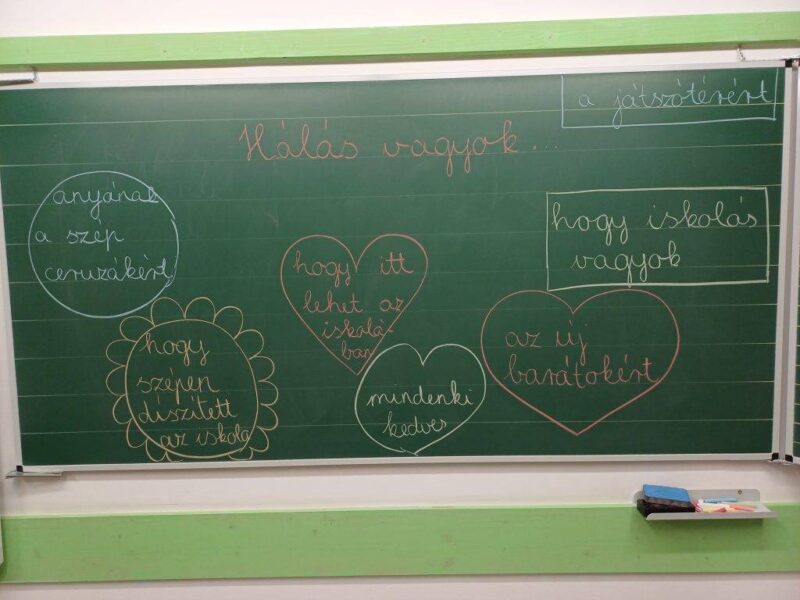 Hálás vagyok...
a játszótérért
anyának
a szép
ceruzákért
hogy iskolás
vagyok
hogy itt
lehet az
iskolá-
ban
az új
barátokért
hogy
szépen
díszített
az iskola
mindenki
kedves